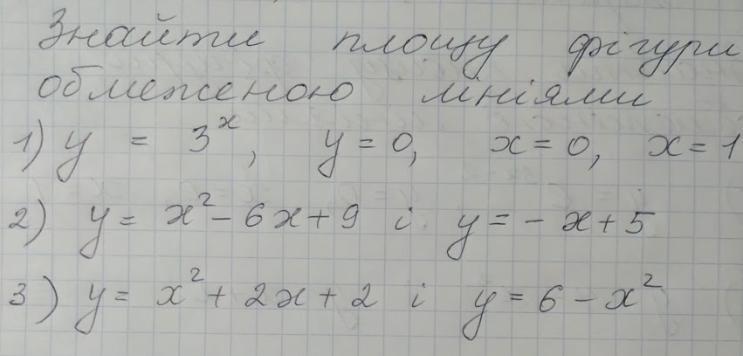 Знайти площу фігури
обмеженою лініями
1) y = 3ˣ, y = 0, x = 0, x = 1
2) y = x² - 6x + 9 і y = - x + 5
3) y = x² + 2x + 2 і y = 6 - x²